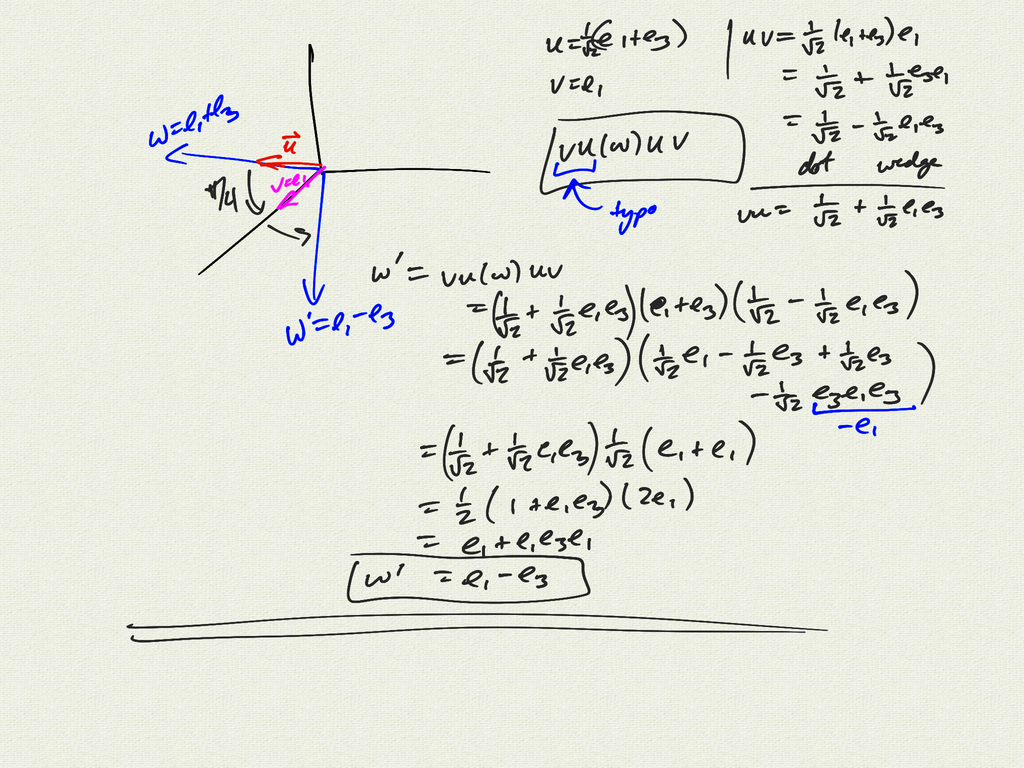 w=e₁+e₃
u⃗
v=e₁
π/4
w'=e₁-e₃
u=1/√2(e₁+e₃)
v=e₁
vu(w)uv
typo
uv=1/√2(e₁+e₃)e₁
=1/√2+1/√2e₃e₁
=1/√2-1/√2e₁e₃
dot wedge
vu=1/√2+1/√2e₁e₃
w'=vu(w)uv
=(1/√2+1/√2e₁e₃)(e₁+e₃)(1/√2-1/√2e₁e₃)
=(1/√2+1/√2e₁e₃)(1/√2e₁-1/√2e₃+1/√2e₃
-1/√2e₃e₁e₃)
-e₁
=(1/√2+1/√2e₁e₃)1/√2(e₁+e₁)
=1/2(1+e₁e₃)(2e₁)
=e₁+e₁e₃e₁
w'=e₁-e₃